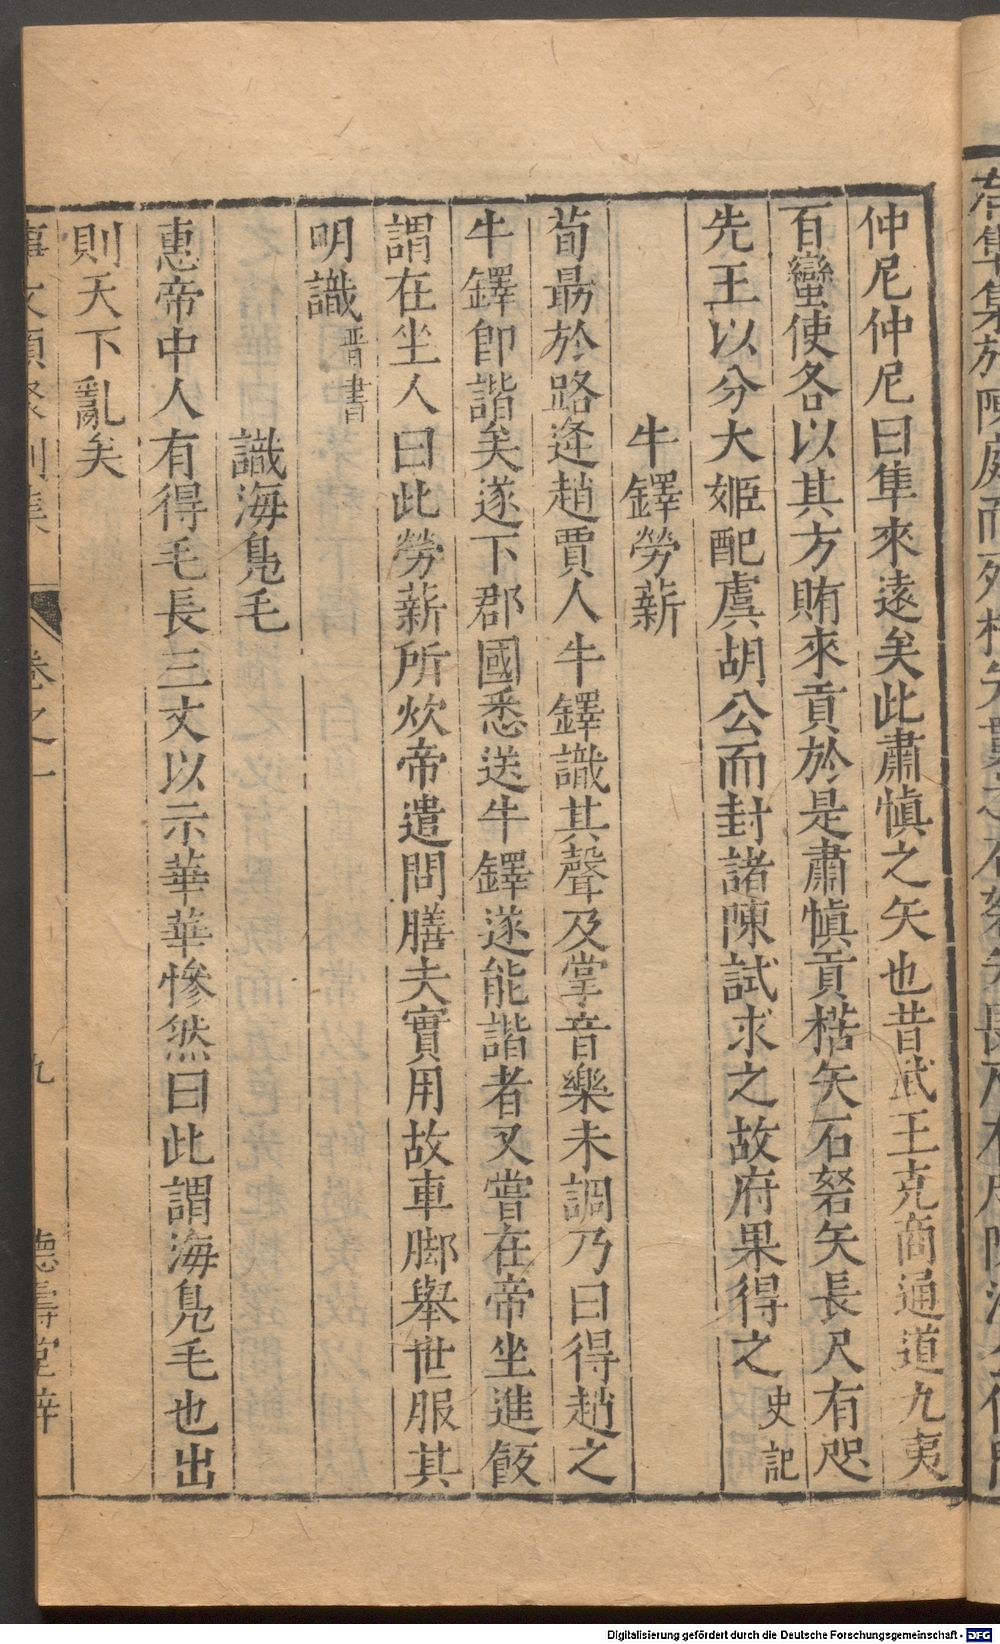 仲尼仲尼曰隼來遠矣此肅愼之矢也昔武王克商通道九夷
百蠻使各以其方賄來貢於是肅愼貢楛矢石砮矢長尺有咫
先王以分大姬配虞胡公而封諸陳試求之故府果得之史記
牛鐸勞薪
荀勗於路逢趙賈人牛鐸識其聲及掌音樂未調乃曰得趙之
牛鐸卽諧矣遂下郡國悉送牛鐸遂能諧者又嘗在帝坐進飯
謂在坐人曰此勞薪所炊帝遣問膳夫實用故車脚舉世服其
明識晋書
識海鳧毛
惠帝中人有得毛長三丈以示華華慘然曰此謂海鳧毛也出
則天下亂矣
事文類聚別集 卷之一 九 德壽堂梓
Digitalisierung gefördert durch die Deutsche Forschungsgemeinschaft - DFG